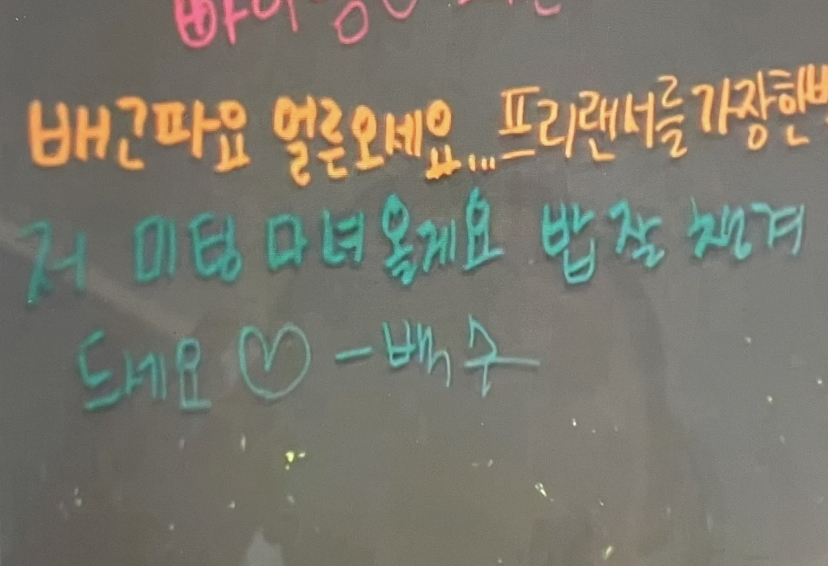 배고파요 얼른오세요... 프리랜서를 가장한
저 미팅 다녀올게요 밥 잘 챙겨
드세요 ♡ - 백수